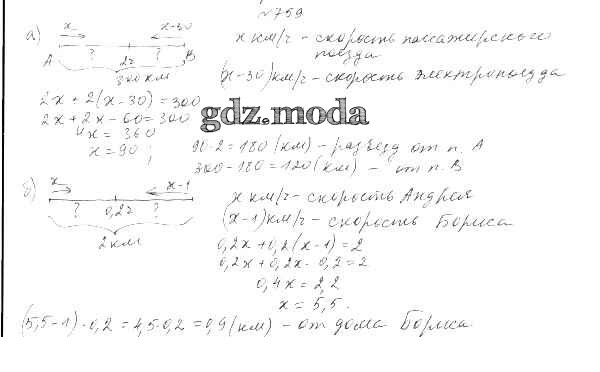 №759
а) x x-30 x км/ч - скорость пассажирского
? 2ч ? поезда
A B
300 км (x-30) км/ч - скорость электропоезда
2x + 2(x-30) = 300
2x + 2x - 60 = 300
gdz.moda
4x = 360
x = 90 ; 90·2 = 180 (км) - разъезд от п. A
300 - 180 = 120 (км) - от п. B
б) x x-1 x км/ч - скорость Андрея
? 0,2ч ? (x-1) км/ч - скорость Бориса
2 км 0,2x + 0,2(x-1) = 2
0,2x + 0,2x - 0,2 = 2
0,4x = 2,2
x = 5,5.
(5,5-1)·0,2 = 4,5·0,2 = 0,9 (км) - от дома Бориса